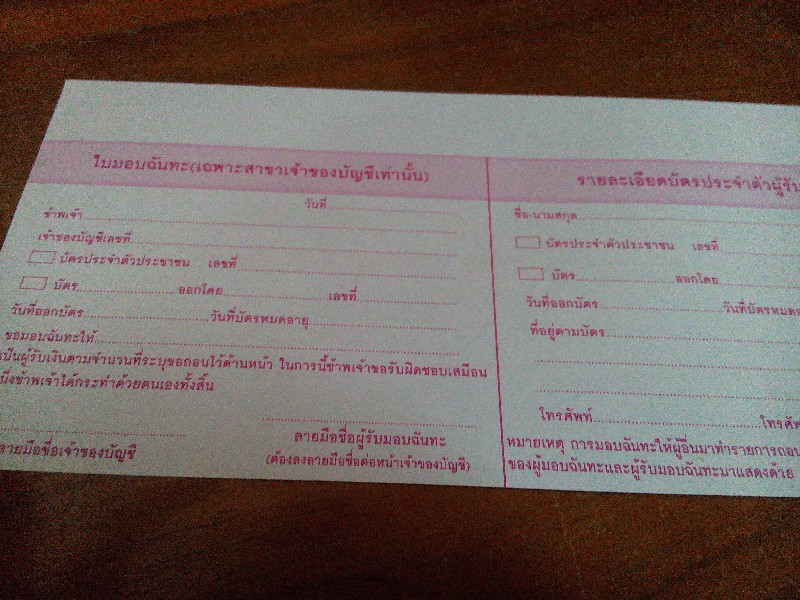 ใบมอบฉันทะ(เฉพาะสาขาเจ้าของบัญชีเท่านั้น)
วันที่
ข้าพเจ้า
เจ้าของบัญชีเลขที่
บัตรประจำตัวประชาชน เลขที่
บัตร ออกโดย เลขที่
วันที่ออกบัตร วันที่บัตรหมดอายุ
ขอมอบฉันทะให้
เป็นผู้รับเงินตามจำนวนที่ระบุขอถอนไว้ด้านหน้า ในการนี้ข้าพเจ้าขอรับผิดชอบเสมือน
นึ่งข้าพเจ้าได้กระทำด้วยตนเองทั้งสิ้น
ลายมือชื่อเจ้าของบัญชี
ลายมือชื่อผู้รับมอบฉันทะ
(ต้องลงลายมือชื่อต่อหน้าเจ้าของบัญชี)
รายละเอียดบัตรประจำตัวผู้รับ
ชื่อ-นามสกุล
บัตรประจำตัวประชาชน เลขที่
บัตร ออกโดย
วันที่ออกบัตร วันที่บัตรหมด
ที่อยู่ตามบัตร
โทรศัพท์ โทรศัพ
หมายเหตุ การมอบฉันทะให้ผู้อื่นมาทำรายการถอน
ของผู้มอบฉันทะและผู้รับมอบฉันทะมาแสดงด้วย